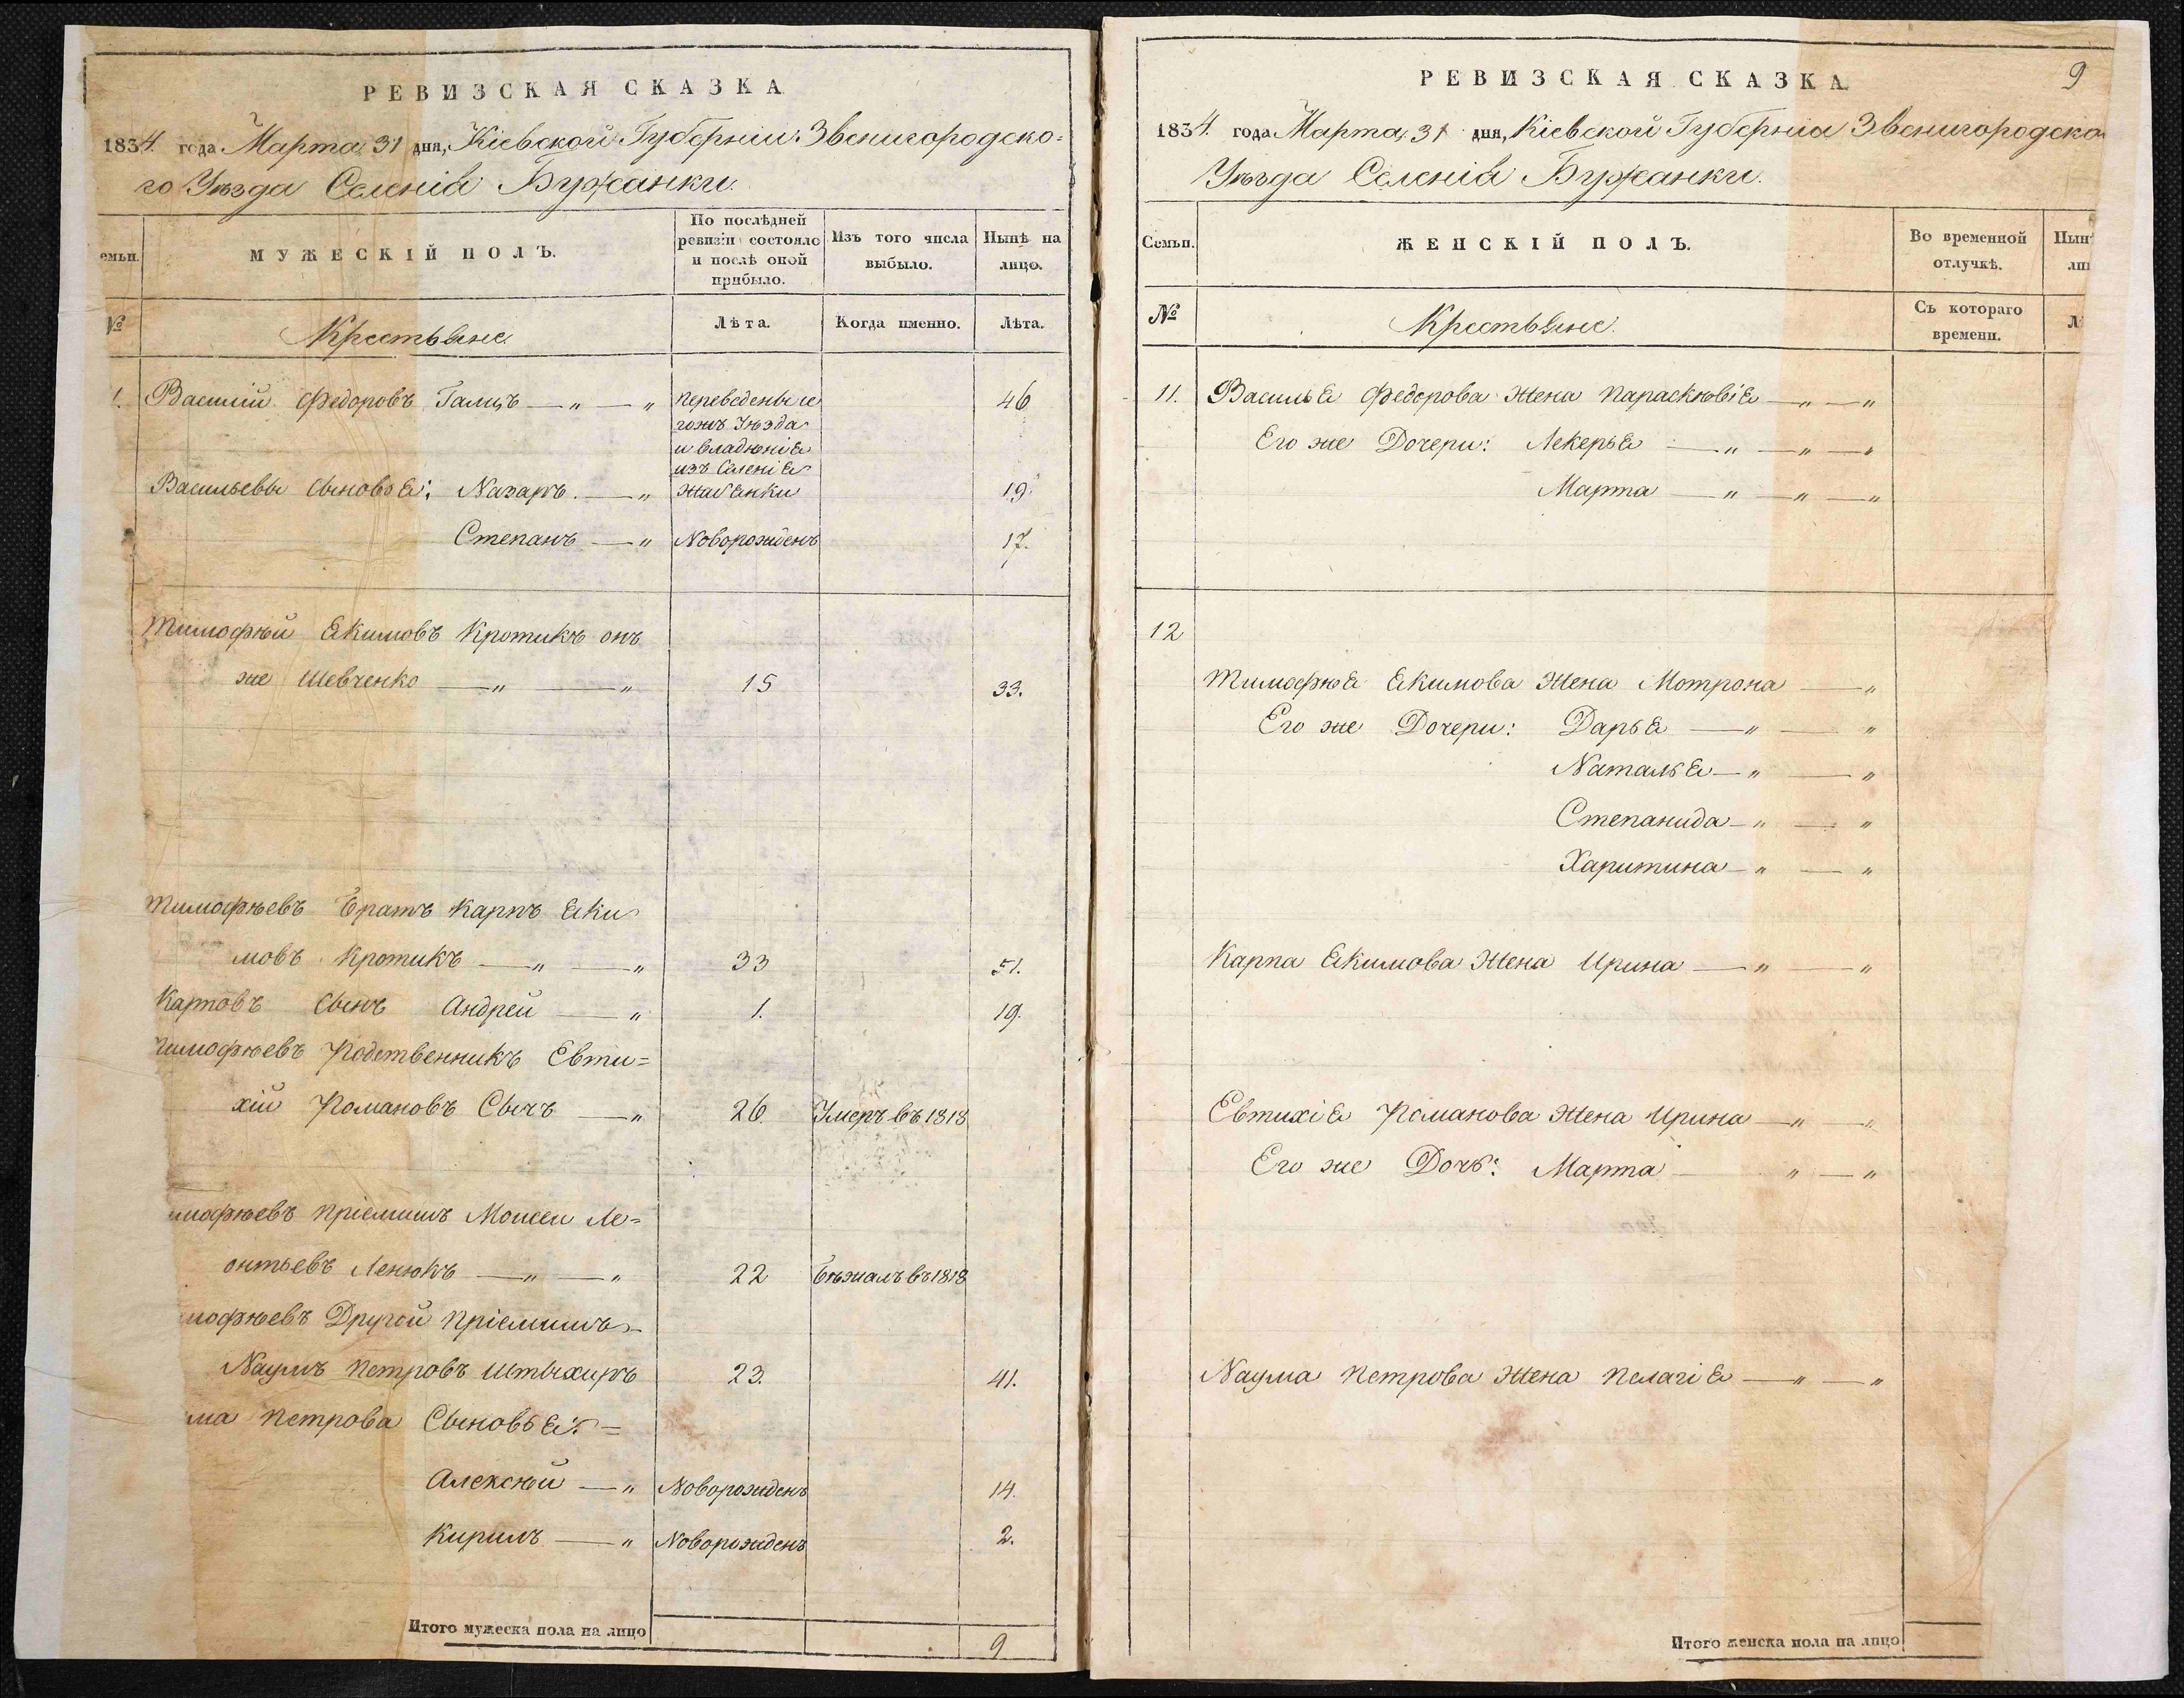 РЕВИЗСКАЯ СКАЗКА
1834 года Марта 31 дня, Кіевской Губерніи Звенигородско-
го Уѣзда Селенія Бужанки.
емьи.
МУЖЕСКІЙ ПОЛЪ.
По послѣдней ревизіи состояло и послѣ оной прибыло.
Изъ того числа выбыло.
Нынѣ на лицо.
№
Крестьяне.
Лѣта.
Когда именно.
Лѣта.
1. Василій Федоровъ Галицъ — „ — „ Переведены с 46
гожъ Уѣзда
и владѣнія
изъ Селенія
Васильевы Сыновья: Назаръ. — „ Жабянки 19.
Степанъ — „ Новорожденъ 17.
Тимофѣй Якимовъ Кротикъ онъ
же Шевченко — „ — „ 15 33.
Тимофѣевъ Братъ Карпъ Яки
мовъ Кротикъ — „ — „ 33 51.
Карповъ Сынъ Андрей — „ 1. 19.
Тимофѣевъ Родственникъ Евти=
хій Романовъ Сычъ — „ 26. Умеръ въ 1818
имофѣевъ Пріемышъ Моисей Ле=
онтьевъ Ленюкъ — „ — „ 22 Бѣжалъ въ 1818
мофѣевъ Другой Пріемышъ
Наумъ Петровъ Штыхиръ 23. 41.
ма Петрова Сыновья: =
Алексѣй — „ Новорожденъ 14.
Кирилъ — „ Новорожденъ 2.
Итого мужеска пола на лицо 9
9
РЕВИЗСКАЯ СКАЗКА
1834. года Марта 31 дня, Кіевской Губерніи Звенигородска
Уѣзда Селенія Бужанки.
Семьи.
ЖЕНСКІЙ ПОЛЪ.
Во временной отлучкѣ.
Нын
ли
№
Крестьяне.
Съ котораго времени.
Л
11. Василья Федорова Жена Параскѣвія — „ — „
Его же Дочери: Лекерья — „ — „ — „
Марта — „ — „ — „
12
Тимофѣя Якимова Жена Мотрона — „
Его же Дочери: Дарья — „ — „
Наталья — „ — „
Степанида — „ — „
Харитина — „ — „
Карпа Якимова Жена Ирина — „ — „
Евтихія Романова Жена Ирина — „ — „
Его же Дочь: Марта — „ — „
Наума Петрова Жена Пелагія — „ — „
Итого женска пола на лицо